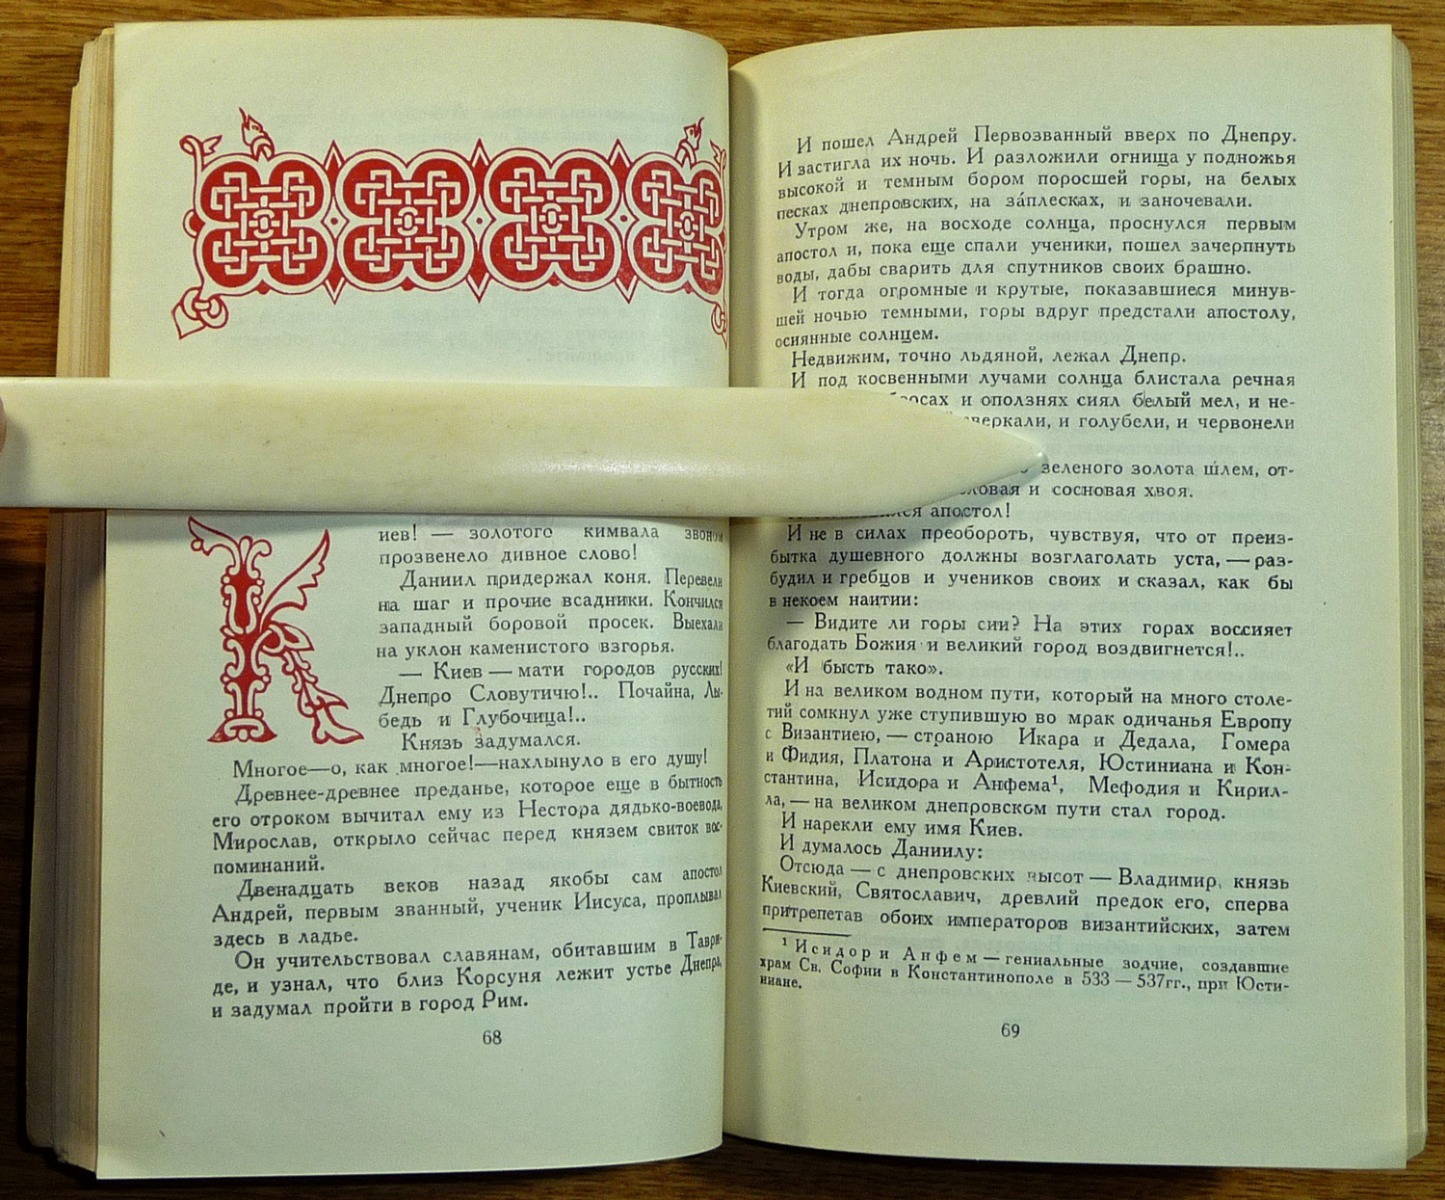 Киев! — золотого кимвала звоном
прозвенело дивное слово!
Даниил придержал коня. Перевели
на шаг и прочие всадники. Кончился
западный боровой просек. Выехали
на уклон каменистого взгорья.
— Киев — мати городов русских!
Днепро Словутичю!.. Почайна, Лы-
бедь и Глубочица!..
Князь задумался.
Многое—о, как многое!—нахлынуло в его душу!
Древнее-древнее преданье, которое еще в бытность
его отроком вычитал ему из Нестора дядько-воевода
Мирослав, открыло сейчас перед князем свиток вос-
поминаний.
Двенадцать веков назад якобы сам апостол
Андрей, первым званный, ученик Иисуса, проплывал
здесь в ладье.
Он учительствовал славянам, обитавшим в Таври-
де, и узнал, что близ Корсуня лежит устье Днепра,
и задумал пройти в город Рим.
68
И пошел Андрей Первозванный вверх по Днепру.
И застигла их ночь. И разложили огнища у подножья
высокой и темным бором поросшей горы, на белых
песках днепровских, на за́плесках, и заночевали.
Утром же, на восходе солнца, проснулся первым
апостол и, пока еще спали ученики, пошел зачерпнуть
воды, дабы сварить для спутников своих брашно.
И тогда огромные и крутые, показавшиеся минув-
шей ночью темными, горы вдруг предстали апостолу,
осиянные солнцем.
Недвижим, точно льдяной, лежал Днепр.
И под косвенными лучами солнца блистала речная
и оползнях сиял белый мел, и не-
сверкали, и голубели, и червонели
зеленого золота шлем, от-
и сосновая хвоя.
апостол!
И не в силах преобороть, чувствуя, что от преиз-
бытка душевного должны возглаголать уста, — раз-
будил и гребцов и учеников своих и сказал, как бы
в некоем наитии:
— Видите ли горы сии? На этих горах воссияет
благодать Божия и великий город воздвигнется!..
«И бысть тако».
И на великом водном пути, который на много столе-
тий сомкнул уже ступившую во мрак одичанья Европу
с Византиею, — страною Икара и Дедала, Гомера
и Фидия, Платона и Аристотеля, Юстиниана и Кон-
стантина, Исидора и Анфема¹, Мефодия и Кирил-
ла, — на великом днепровском пути стал город.
И нарекли ему имя Киев.
И думалось Даниилу:
Отсюда — с днепровских высот — Владимир, князь
Киевский, Святославич, древлий предок его, сперва
притрепетав обоих императоров византийских, затем
¹ Исидор и Анфем — гениальные зодчие, создавшие
храм Св. Софии в Константинополе в 533 — 537гг., при Юсти-
ниане.
69